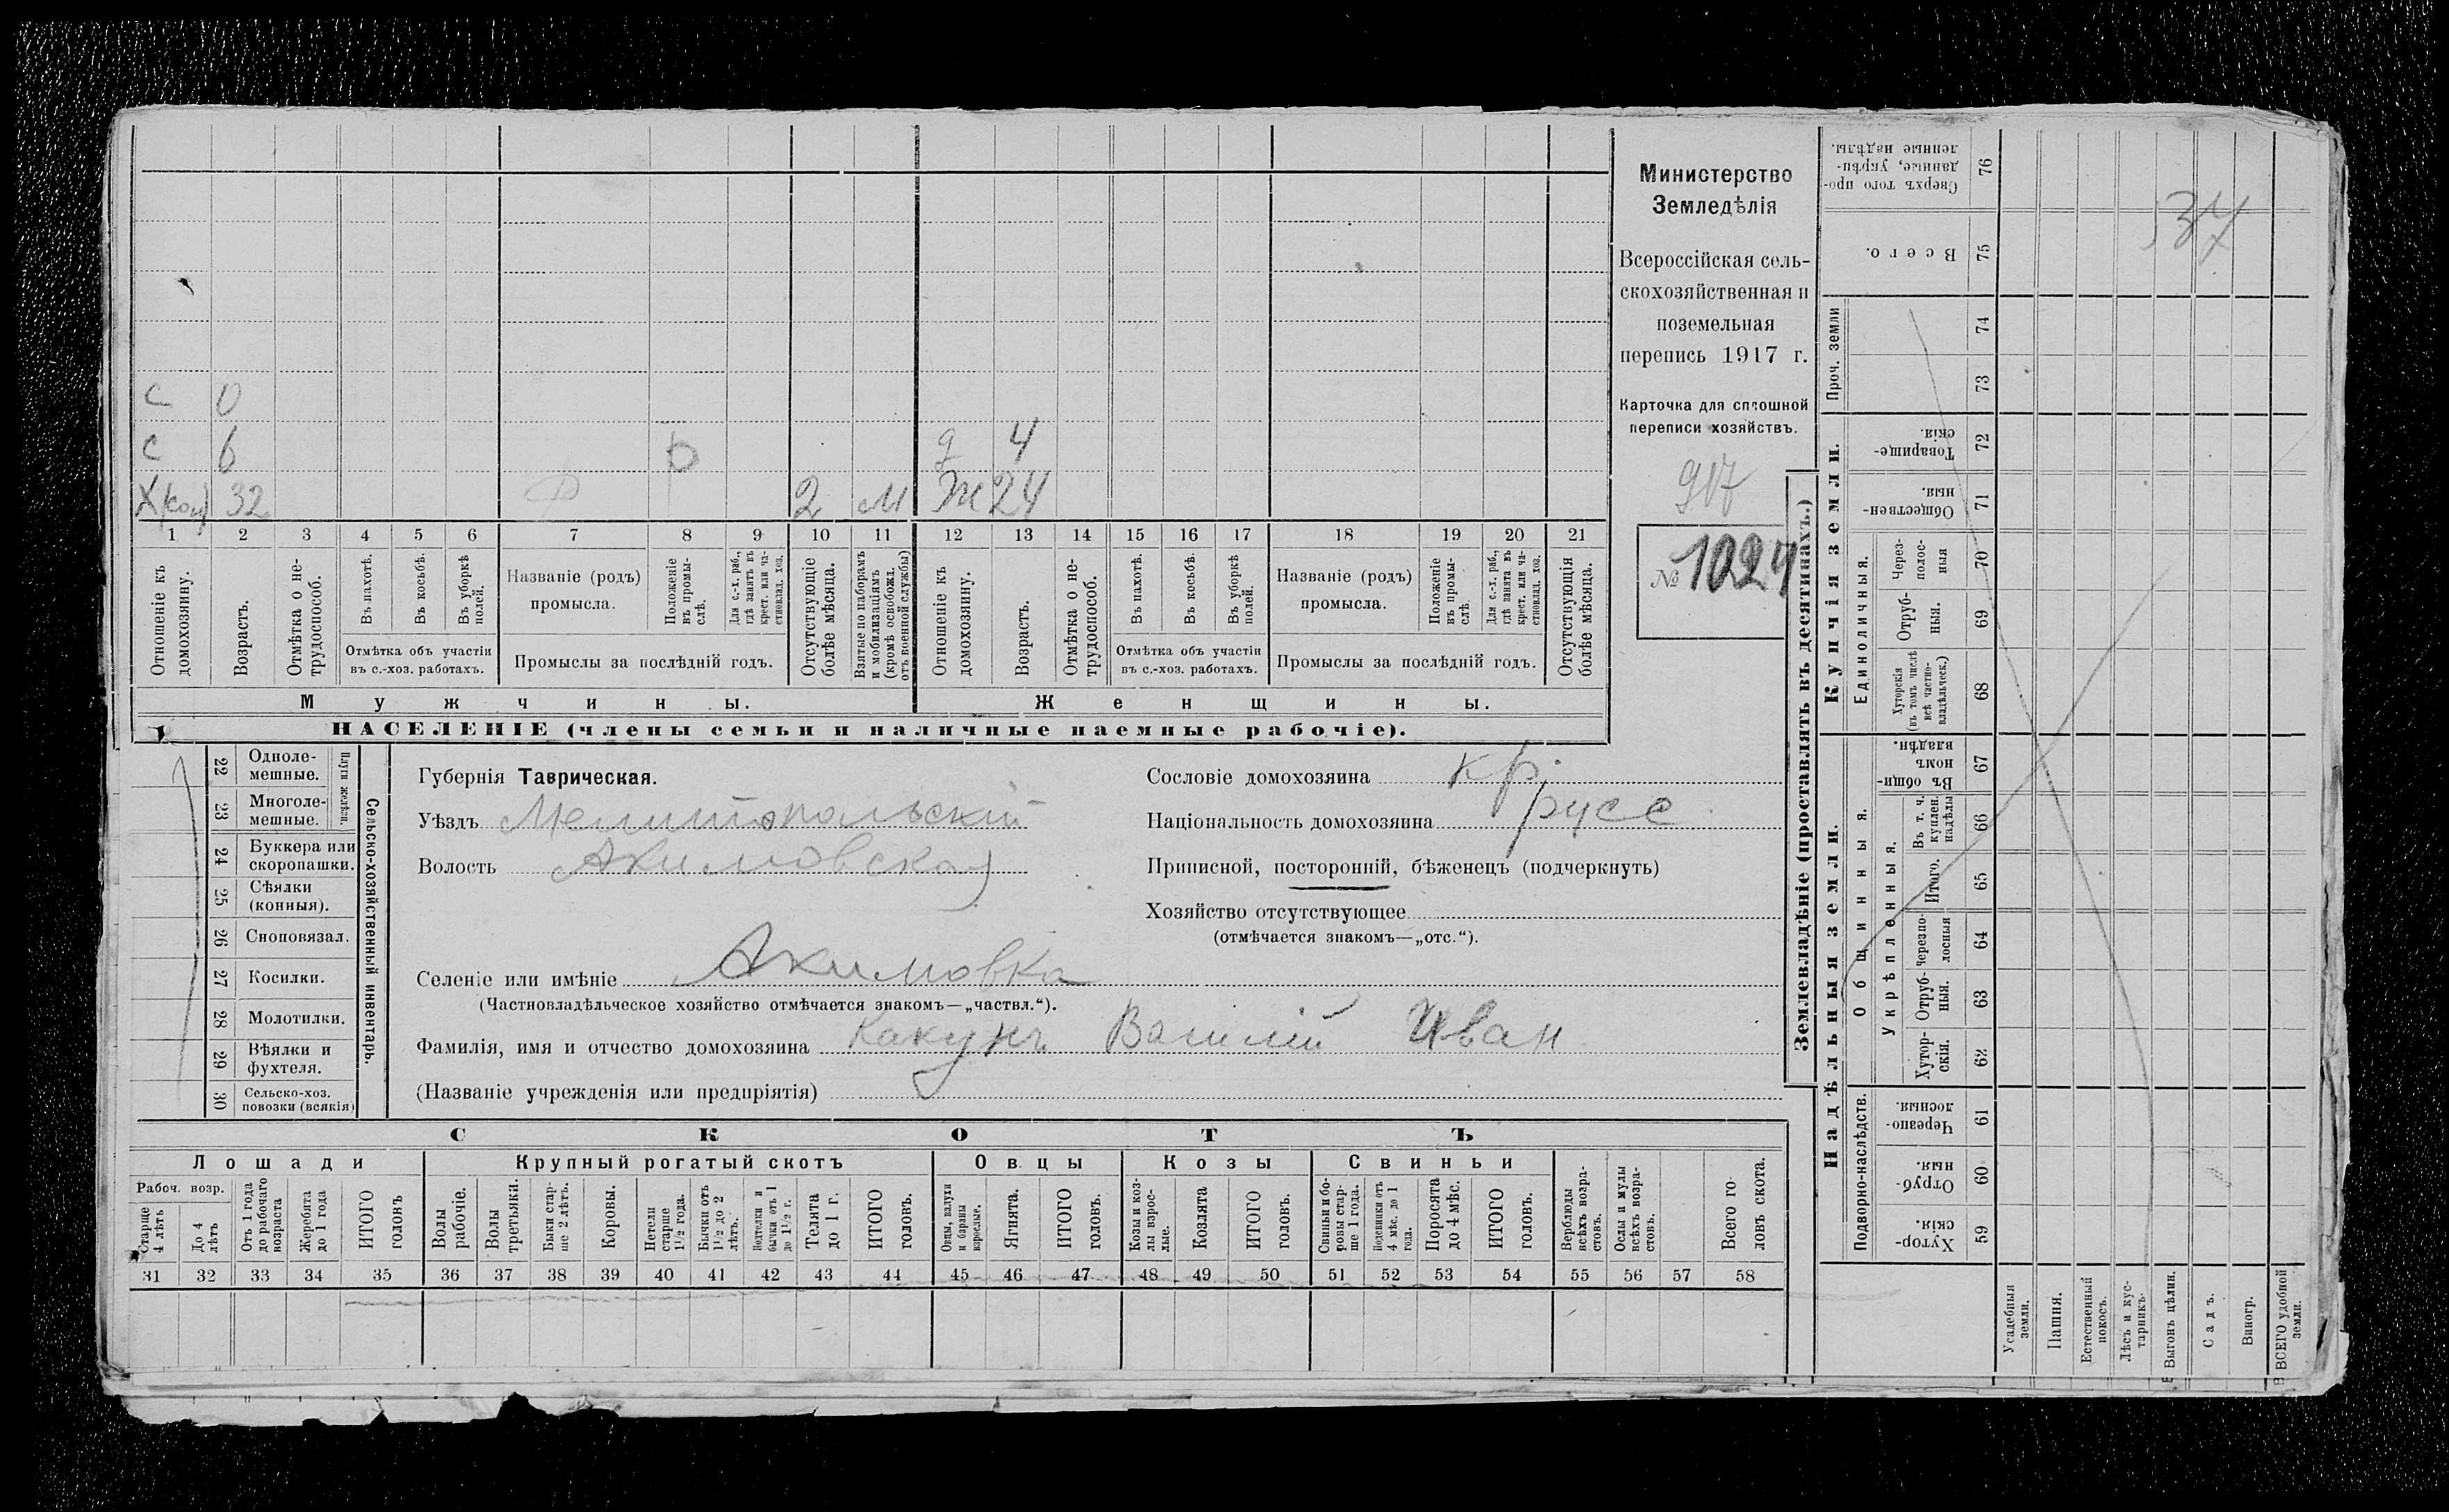 Министерство
Земледѣлія
Всероссійская сель-
скохозяйственная и
поземельная
перепись 1917 г.
Карточка для сплошной
переписи хозяйствъ.
917
№ 1024
37
с 0
с 6 д 4
Х(кои) 32 2 м Ж 24
1 2 3 4 5 6 7 8 9 10 11 12 13 14 15 16 17 18 19 20 21
Отношеніе къ домохозяину.
Возрастъ.
Отмѣтка о не-трудоспособ.
Въ пахотѣ.
Въ косьбѣ.
Въ уборкѣ полей.
Отмѣтка объ участіи
въ с.-хоз. работахъ.
Названіе (родъ)
промысла.
Положеніе въ промы-слѣ.
Для с.-х. раб., гдѣ занятъ въ крест. или ча-стновлад. хоз.
Промыслы за послѣдній годъ.
Отсутствующіе болѣе мѣсяца.
Взятые по наборамъ и мобилизаціямъ (кромѣ освобожд. отъ военной службы)
Отношеніе къ домохозяину.
Возрастъ.
Отмѣтка о не-трудоспособ.
Въ пахотѣ.
Въ косьбѣ.
Въ уборкѣ полей.
Отмѣтка объ участіи
въ с.-хоз. работахъ.
Названіе (родъ)
промысла.
Положеніе въ промы-слѣ.
Для с.-х. раб., гдѣ занята въ крест. или ча-стновлад. хоз.
Промыслы за послѣдній годъ.
Отсутствующія болѣе мѣсяца.
Мужчины. Женщины.
НАСЕЛЕНІЕ (члены семьи и наличные наемные рабочіе).
22 Одноле-мешные.
23 Многоле-мешные.
Плуги желѣзн.
24 Буккера или скоропашки.
25 Сѣялки (конныя).
26 Сноповязал.
27 Косилки.
28 Молотилки.
29 Вѣялки и фухтеля.
30 Сельско-хоз. повозки (всякія)
Сельско-хозяйственный инвентарь.
Губернія Таврическая.
Уѣздъ Мелитопольскій
Волость Акимовская
Сословіе домохозяина кр
Національность домохозяина русс
Приписной, посторонній, бѣженецъ (подчеркнуть)
Хозяйство отсутствующее
(отмѣчается знакомъ—„отс.“).
Селеніе или имѣніе Акимовка
(Частновладѣльческое хозяйство отмѣчается знакомъ—„частвл.“).
Фамилія, имя и отчество домохозяина Какунъ Василій Иван
(Названіе учрежденія или предпріятія)
СКОТЪ
Лошади Крупный рогатый скотъ Овцы Козы Свиньи
Рабоч. возр.
Старще 4 лѣтъ
До 4 лѣтъ
Отъ 1 года до рабочаго возраста
Жеребята до 1 года
ИТОГО головъ
Волы рабочіе.
Волы третьяки.
Быки стар-ше 2 лѣтъ.
Коровы.
Нетели старше 1 1/2 года.
Бычки отъ 1 1/2 до 2 лѣтъ.
Подтелки и бычки отъ 1 до 1 1/2 г.
Телята до 1 г.
ИТОГО головъ.
Овцы, валухи и бараны взрослые.
Ягнята.
ИТОГО головъ.
Козы и коз-лы взрос-лые.
Козлята
ИТОГО головъ.
Свиньи и бо-ровы стар-ше 1 года.
Подсвинки отъ 4 мѣс. до 1 года.
Поросята до 4 мѣс.
ИТОГО головъ.
Верблюды всѣхъ возра-стовъ.
Ослы и мулы всѣхъ возра-стовъ.
Всего го-ловъ скота.
31 32 33 34 35 36 37 38 39 40 41 42 43 44 45 46 47 48 49 50 51 52 53 54 55 56 57 58
Землевладѣніе (проставлять въ десятинахъ.)
Купчія земли.
Сверхъ того про-данные, укрѣп-ленные надѣлы. 76
Всего. 75
Проч. земли 74 73
Товарище-скія. 72
Обществен-ныя. 71
Единоличныя.
Через-полос-ныя 70
Отруб-ныя. 69
Хуторскія (въ томъ числѣ всѣ частно-владѣльческ.) 68
Надѣльныя земли.
Общинныя.
Въ общи-номъ владѣн. 67
Укрѣпленныя.
Въ т. ч. куплен. надѣлы 66
Итого. 65
Черезпо-лосныя 64
Отруб-ныя. 63
Хутор-скія. 62
Подворно-наслѣдств.
Черезпо-лосныя. 61
Отруб-ныя. 60
Хутор-скія. 59
Усадебныя земли.
Пашня.
Естественный покосъ.
Лѣсъ и кус-тарникъ.
Выгонъ цѣлин.
Садъ.
Виногр.
ВСЕГО удобной земли.